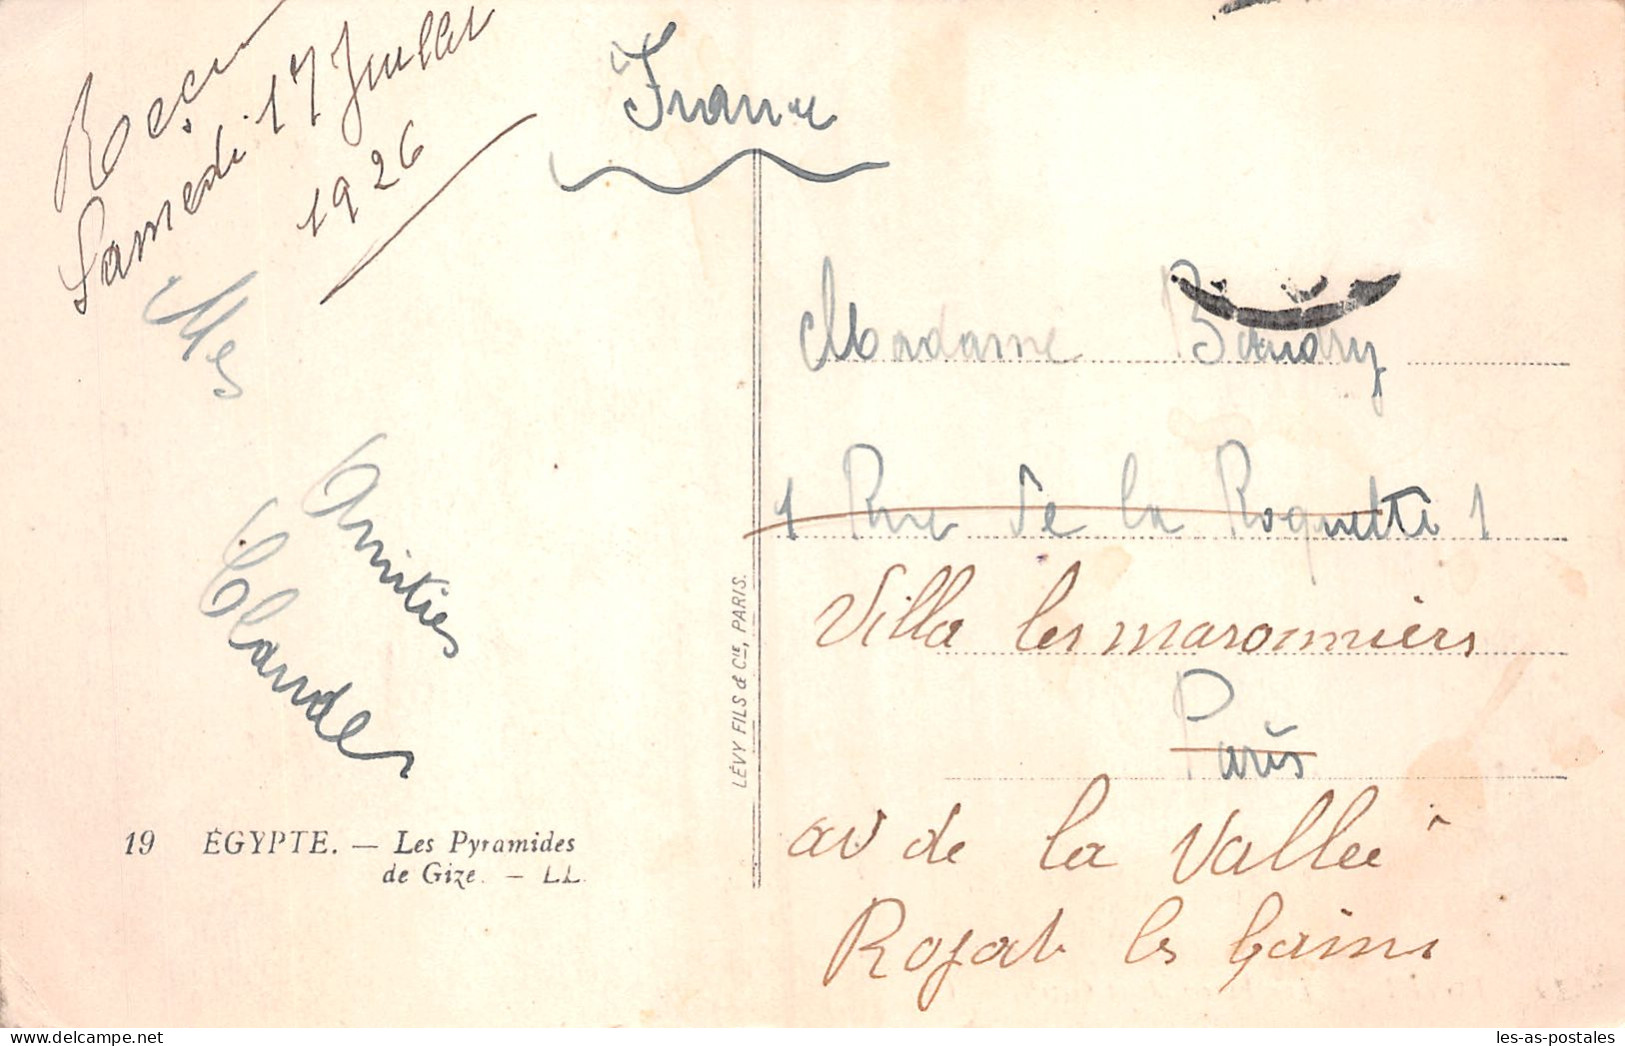 Reçu
Samedi 17 Juillet
1926
France
Mes
Amitiés
Claudes
Madame Baudry
1 Rue de la Roquette 1
Villa les maronniers
Paris
av de la Vallée
Royat les bains
19 ÉGYPTE. — Les Pyramides
de Gize. — LL.
LÉVY FILS & Cie, PARIS.
les-as-postales